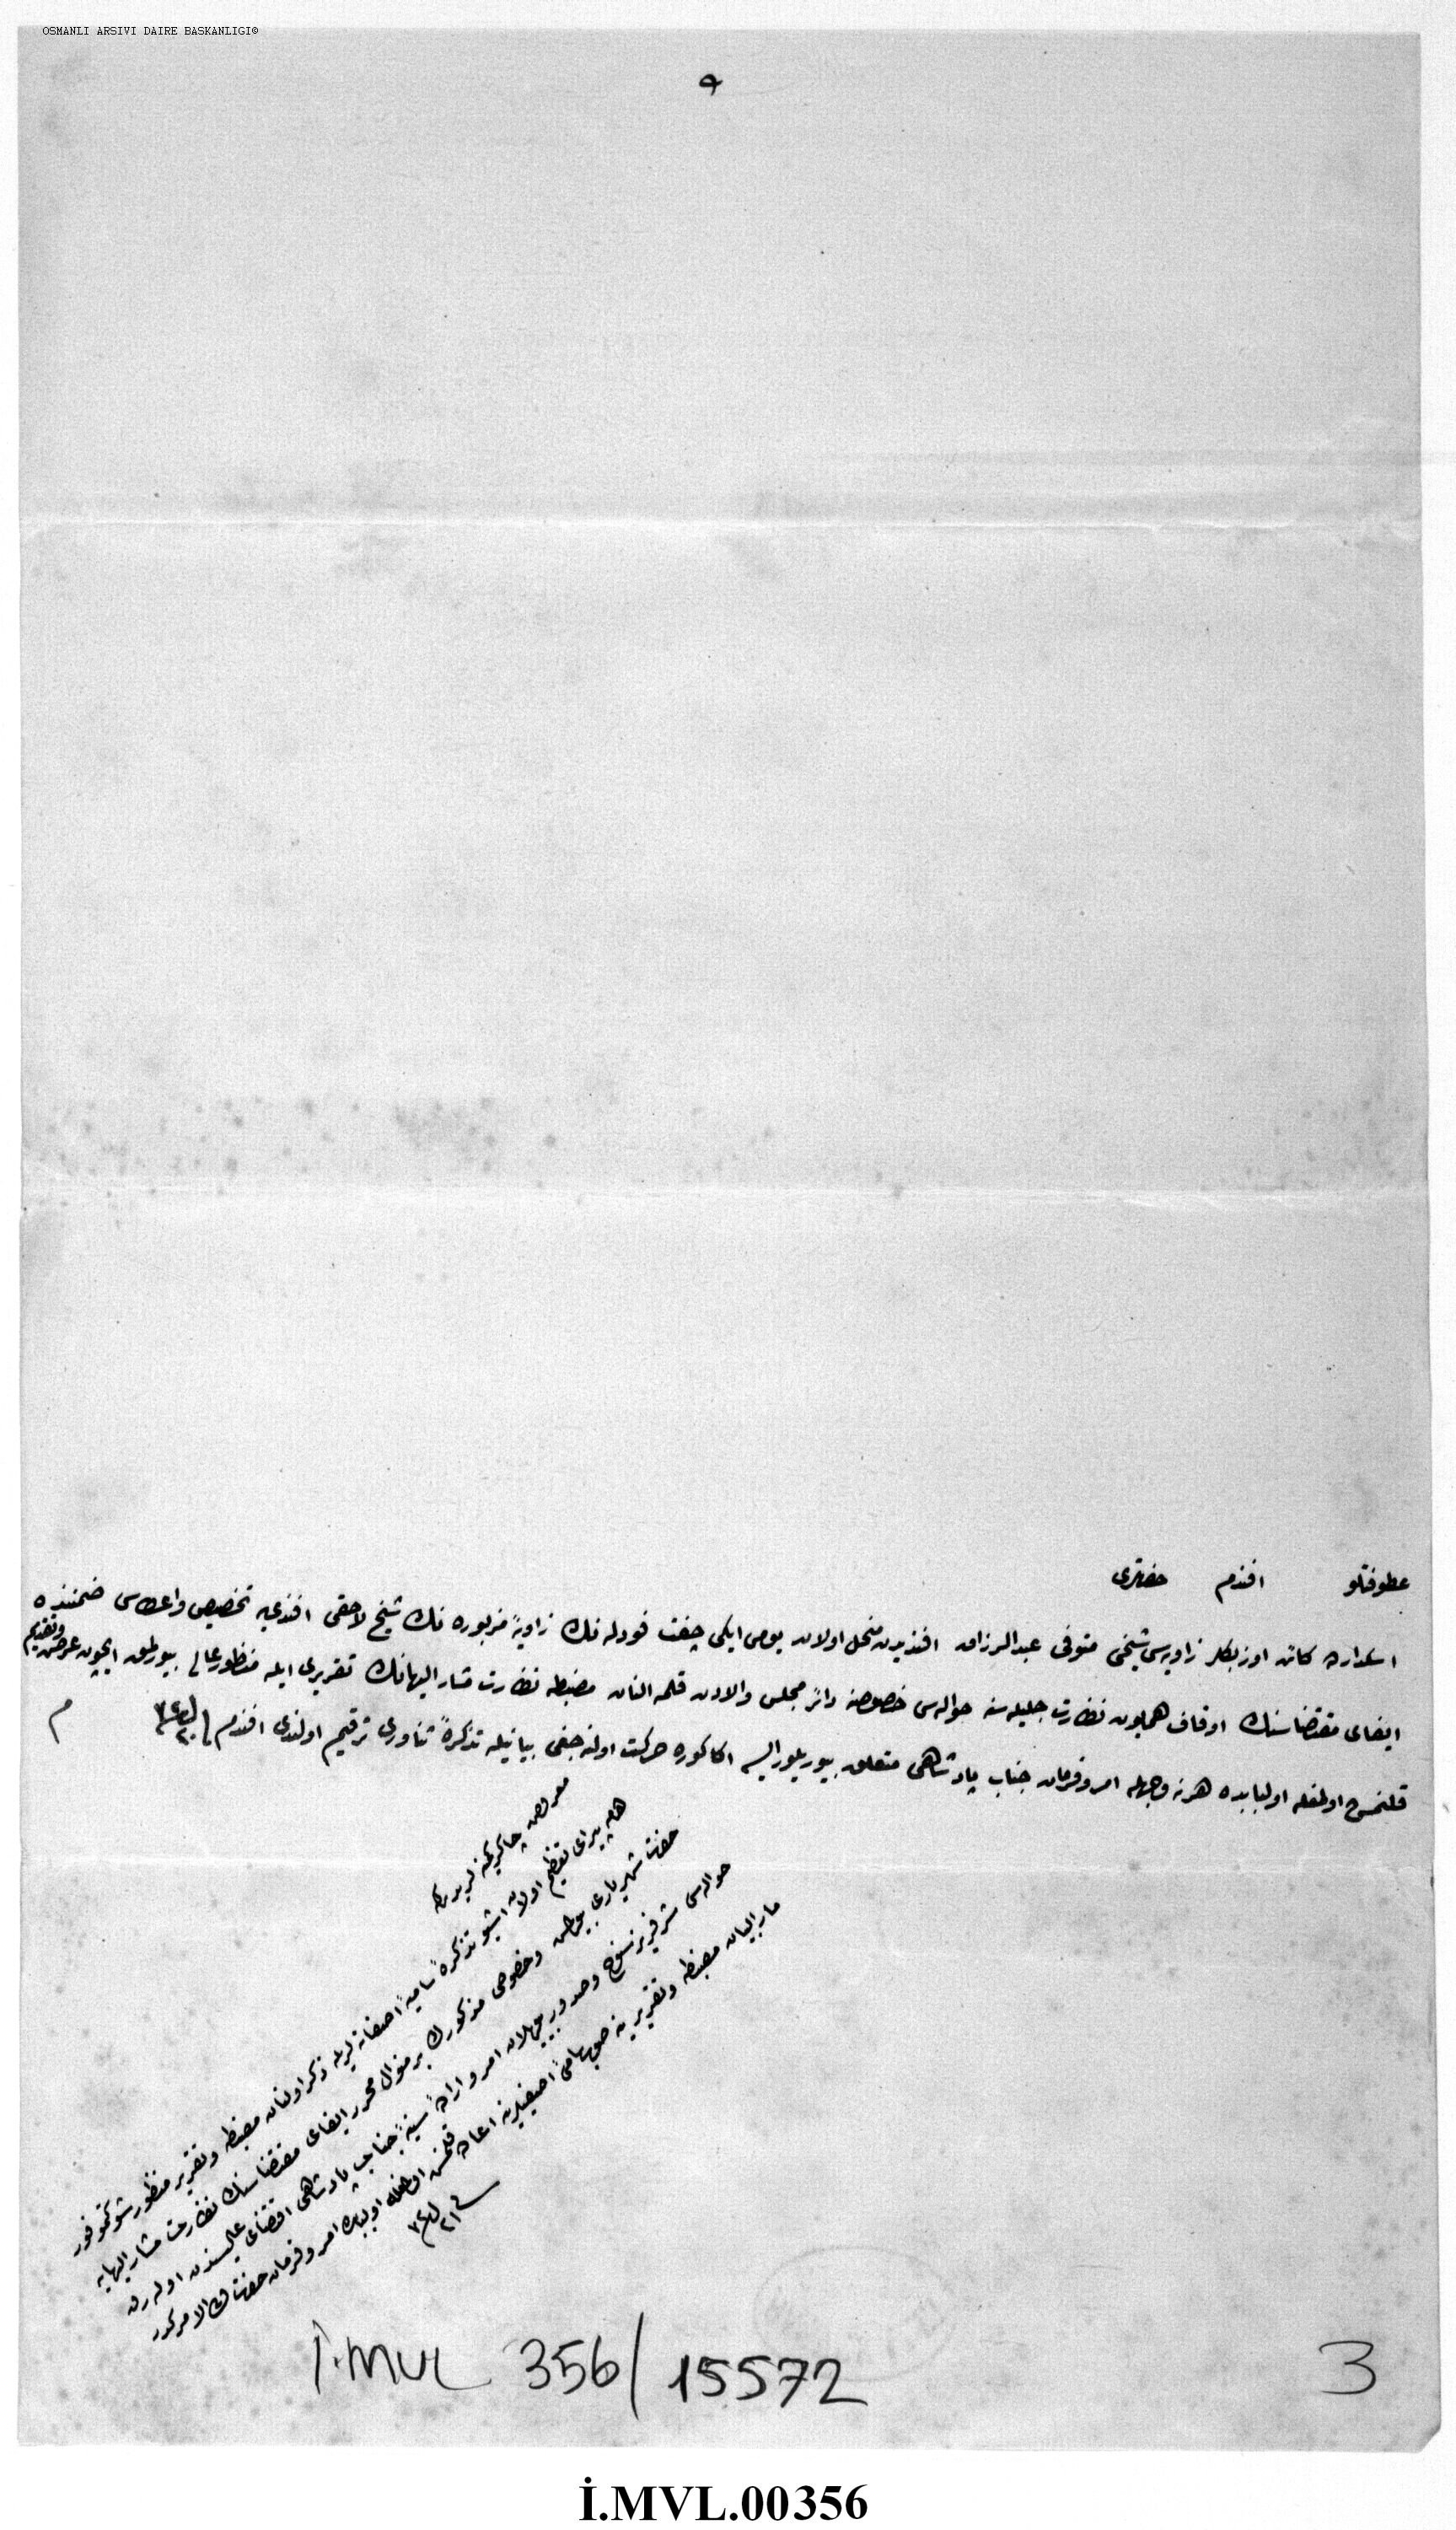 OSMANLI ARSIVI DAIRE BASKANLIGI©
عطوفتلو افندم حضرتلری
اسكدارده كائن اوزبكلر زاویه‌سی شیخی متوفی عبدالرزاق افندیدن منحل اولان یومی ایكی چفت فودله‌نك زاویهٔ مزبوره‌نك شیخ لاحقی افندی‌یه تخصیص واعطاسی ضمننده
ایفای مقتضاسنك اوقاف همایون نظارت جلیله‌سنه حواله‌سی خصوصنه دائر مجلس والادن قلمه النان مضبطه نظارت مشار الیهانك تقریری ایله منظور عالی بیورلمق ایچون عرض وتقدیم
قلنمش اولمغله اولبابده هرنه وجهله امر وفرمان جناب پادشاهی متعلق بیوریلور ایسه اكا كوره حركت اولنه‌جغی بیانیله تذكرهٔ ثناوری ترقیم اولندی افندم
م
معروض چاكر كمینه‌لریدركه
اولان اشبو تذكرهٔ سامیهٔ اصفانه‌لریله ذكر اولنان مضبطه وتقریر منظور شوكتموفور
حضرت شهریاری بیورلمش وخصوص مذكورك بر منوال محرر ایفای مقتضاسنك نظارت مشار الیهایه
حواله‌سی شرفریز سنوح وصدور بیوریلان امر وارادهٔ سنیهٔ جناب پادشاهی اقتضای عالیسندن اوله‌رق
مار البیان مضبطه وتقریر ینه صوب سامیٔ اصفیلرینه اعاده قلنمش اولمغله اولبابده امر وفرمان حضرت ولی الامركدر
İ.MVL 356/15572
3
İ.MVL.00356